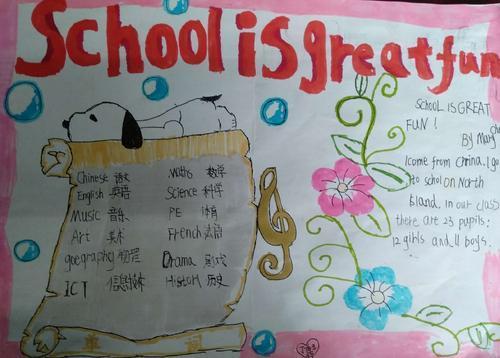 School is great fun
Chinese 语文
English 英语
Music 音乐
Art 美术
goegraphy 地理
ICT 信息技术
Maths 数学
Science 科学
PE 体育
French 法语
Drama 戏剧
History 历史
单词
SchooL IS GREAT
FUN !
By Mary
I come from China. I go
to schol on North
Island, in our class
there are 23 pupils:
12 girls and 11 boys.